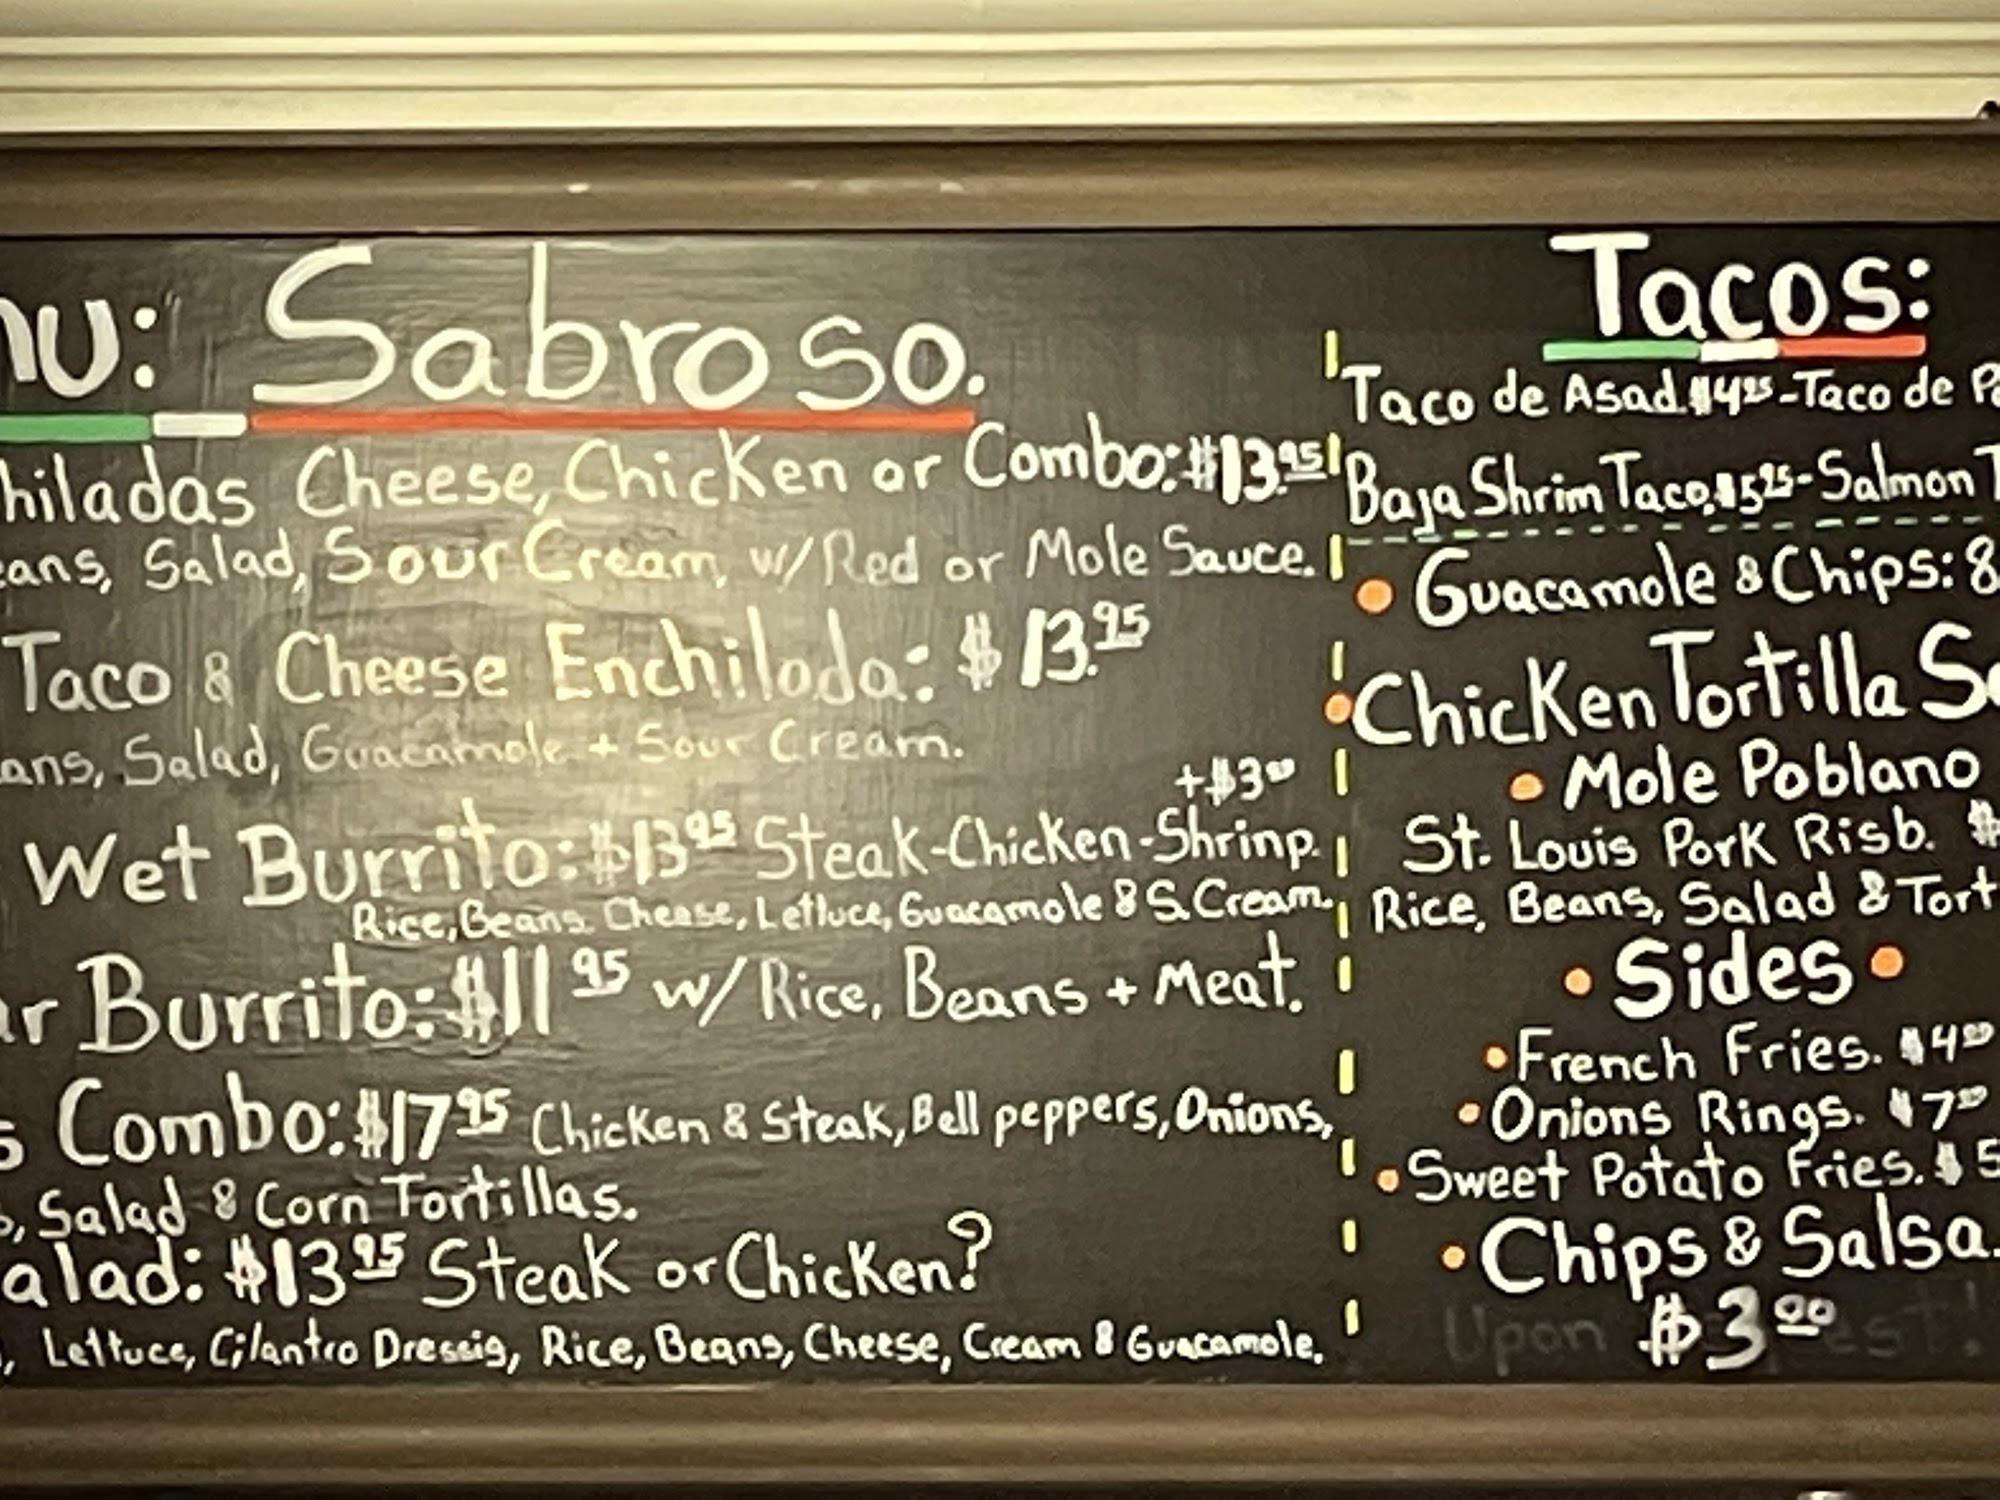 nu: Sabroso.
hiladas Cheese, Chicken or Combo: $13.95
eans, Salad, Sour Cream, w/ Red or Mole Sauce.
Taco & Cheese Enchilada: $13.95
ans, Salad, Guacamole + Sour Cream.
+$3.00
Wet Burrito: $13.95 Steak-Chicken-Shrinp.
Rice, Beans, Cheese, Lettuce, Guacamole & S. Cream.
ar Burrito: $11.95 w/ Rice, Beans + Meat.
s Combo: $17.95 Chicken & Steak, Bell peppers, Onions,
, Salad & Corn Tortillas.
alad: $13.95 Steak or Chicken?
, Lettuce, Cilantro Dressig, Rice, Beans, Cheese, Cream & Guacamole.
Tacos:
Taco de Asad. $4.25 - Taco de P
Baja Shrim Taco, $5.25 - Salmon T
• Guacamole & Chips: 8
• Chicken Tortilla S
• Mole Poblano
St. Louis Pork Risb. $
Rice, Beans, Salad & Tort
• Sides •
• French Fries. $4.00
• Onions Rings. $7.00
• Sweet Potato Fries. $5
• Chips & Salsa.
Upon $3.00 est!